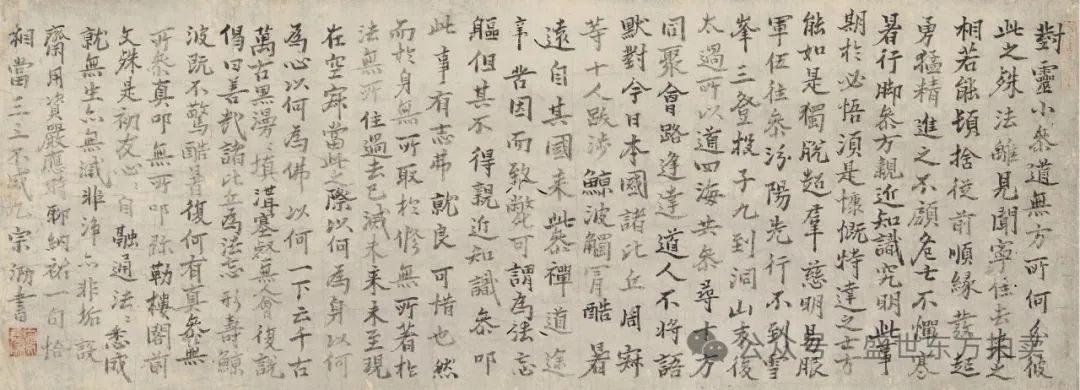 對靈小參道無方所何分彼
此之殊法離見聞寧住去來之
相若能頓捨從前順緣發起
勇猛精進之不顧危亡不憚寒
暑行脚參方親近知識究明此事
期於必悟須是慷慨特達之士方
能如是獨脫超羣慈明易服
軍伍往參汾陽先行不到雪
峯三登投子九到洞山末後
太過所以道四海共參尋十方
同聚會路逢達道人不將語
默對今日本國諸比丘周
等十人跋涉鯨波觸冒酷暑
遠自其國來此參禪道途
辛苦因而致斃可謂為法忘
軀但其不得親近知識參叩
此事有志弗就良可惜也然
而於身無所取於修無所著於
法無所住過去已滅未來未至現
在空寂當此之際以何為身以何
為心以何為佛以何一下云千古
萬古黑漫〻填溝塞壑無人會復說
偈曰善哉諸比丘為法忘形壽鯨
波既不驚酷暑復何有真參無
所參真叩無所叩弥勒樓閣前
文殊是初友心〻自融通法〻悉成
就無生亦無滅非淨亦非垢設
齋用資嚴應時聊納祐一句恰
相當三三不成九 宗泐書
公众号·盛世东方拍卖